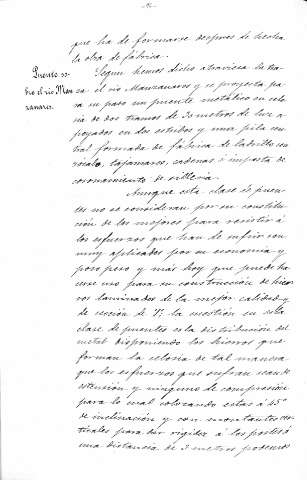 que ha de formarse despues de hecha
la obra de fábrica.
Puente so-
bre el rio Man
zanares.
Segun hemos dicho atraviesa la tra-
za el rio Manzanares y se proyecta pa-
ra su paso un puente metálico en celo-
sia de dos tramos de 30 metros de luz a-
poyados en dos estribos y una pila cen-
tral formada de fábrica de ladrillo con
zócalo, tajamares, cadenas é imposta de
coronamiento de sillería.
Aunque esta clase de puen-
tes no se consideran por su constitu-
ción de los mejores para resistir á
los esfuerzos que han de sufrir son
muy aplicados por su economia y
poco peso y más hoy que puede ha-
cerse uso para su construcción de hier-
ros laminados de la mejor calidad y
de sección de T; la cuestión en esta
clase de puentes es la distribución del
metal disponiendo los hierros que
forman la celosia de tal manera
que los esfuerzos que sufran sean de
estensión y ninguno de compresión
para lo cual colocando estas á 45°
de inclinación y con montantes ver-
ticales para dar rigidez á los
una distancia de 3 metros podemos